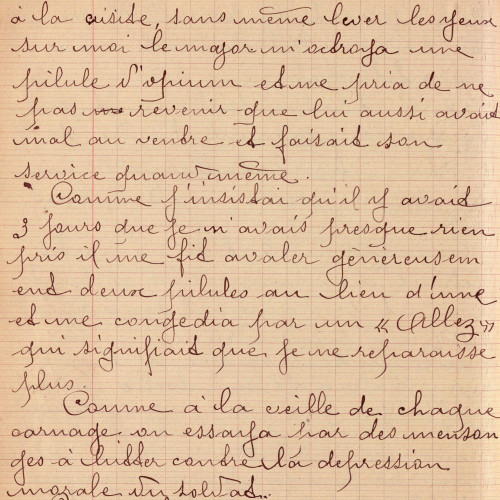 à la visite, sans même lever les yeux
sur moi le major m'octroya une
pilule d'opium et me pria de ne
pas revenir que lui aussi avait
mal au ventre et faisait son
service quand même.
Comme j'insistai qu'il y avait
3 jours que je n'avais presque rien
pris il me fit avaler génereusem
ent deux pilules au lieu d'une
et me congedia par un « Allez »
qui signifiait que je ne reparaisse
plus.
Comme à la veille de chaque
carnage on essaya par des menson
ges à lutter contre la depression
morale du soldat.